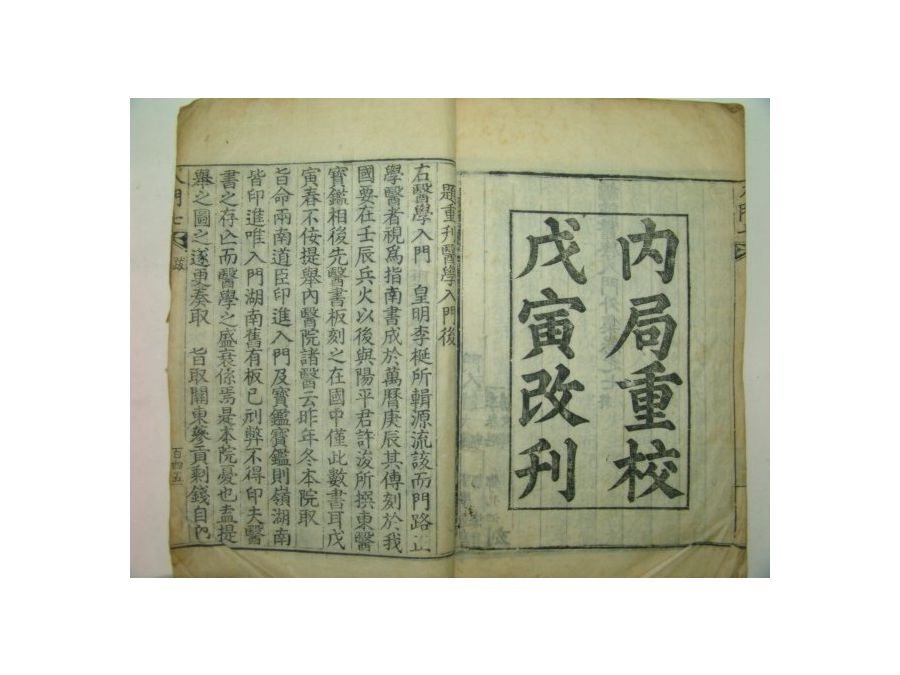 内局重校
戊寅改刋
題重刋醫學入門後
右醫學入門 皇明李梴所輯源流該而門路正
學醫者視爲指南書成於萬曆庚辰其傳刻於我
國要在壬辰兵火以後與陽平君許浚所撰東醫
寶鑑相後先醫書板刻之在國中僅此數書耳戊
寅春不侫提舉内醫院諸醫云昨年冬本院取
旨命兩南道臣印進入門及寶鑑寶鑑則嶺湖南
皆印進唯入門湖南舊有板已刓弊不得印夫醫
書之存亾而醫學之盛衰係焉是本院憂也盍提
舉之圖之遂更奏取 旨取關東參貢剩錢自内
跋
百四五